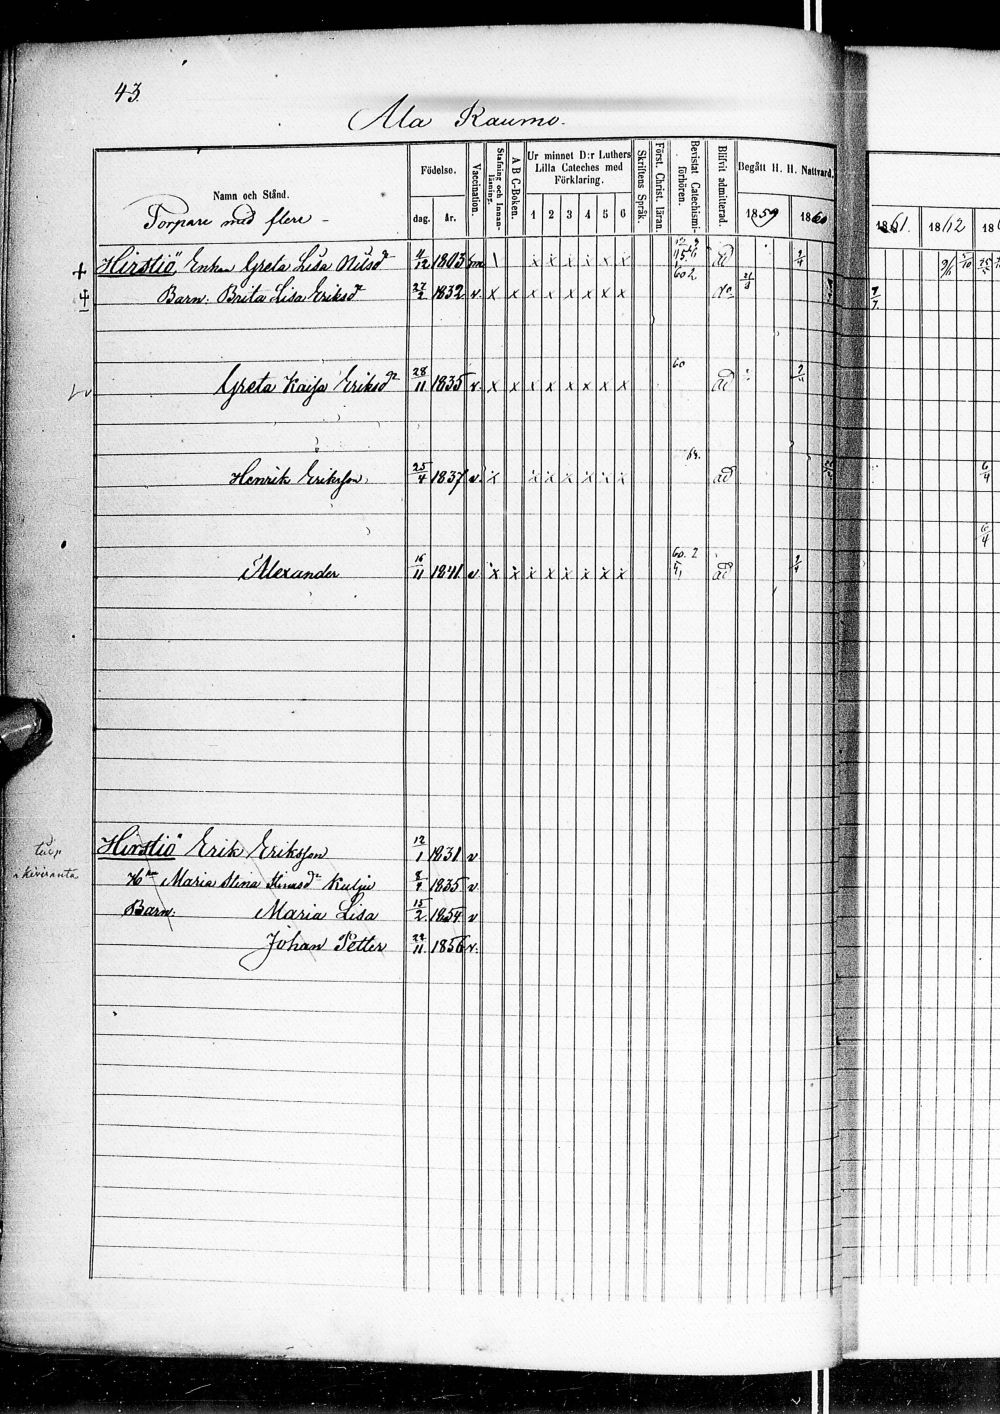 43.
Ala Kaumo.
Namn och Stånd.
Torpare med flere -
Födelse.
dag. år.
Vaccination.
Stafning och Innanläsning.
A B C-Boken.
Ur minnet D:r Luthers Lilla Cateches med Förklaring.
1 2 3 4 5 6
Skriftens Språk.
Först. Christ. läran.
Bevistat Catechismiförhören.
Blifvit admitterad.
Begått H. H. Nattvard.
1859 1860
1861. 1862 186
+ Hirstiö, Enkan Greta Lisa Nilsdr 4/12 1803 \ x x x x x x ad 2/4
Barn: Brita Lisa Eriksdr 27/2 1832 v. x x x x x x x x 7/7
Greta Kaisa Eriksdr 28/11 1835 v. x x x x x x x x 60 ad
Henrik Eriksson 25/4 1837 v. x x x x x x x ad 6/4
6/4
Alexander 16/11 1841 v x x x x x x x x 60. 2 ad 2/4
Hirstiö Erik Eriksson 12/1 1831 v
Hru Maria Stina Kulju 1835 v.
Barn: Maria Lisa 15/2. 1854 v
Johan Petter 22/11. 1856 v.